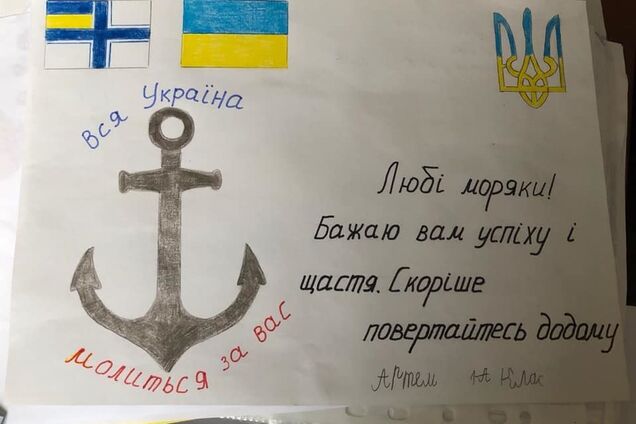 Вся Україна
молиться за вас
Любі моряки!
Бажаю вам успіху і
щастя. Скоріше
повертайтесь додому
Артем 4А Клас